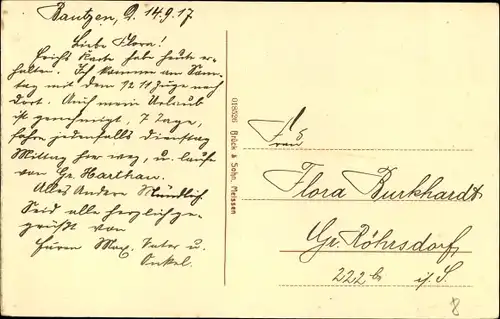 Bautzen, d. 14.9.17
Liebe Flora!
Erichs Karte habe heute er-
halten. Ich komme am Sonn-
tag mit dem 12 11 Zuge nach
dort. Auch mein Urlaub
ist genehmigt, 7 Tage,
fahre jedenfalls Dienstag
Mittag hier weg, u. laufe
von Gr. Harthau.
Alles Andere Mündlich.
Seid alle herzlich ge-
grüßt von
Max, Vater u.
Onkel.
018026 Brück & Sohn, Meissen
Frau
Flora Burkhardt
Gr. Röhrsdorf,
222b i/S.
8